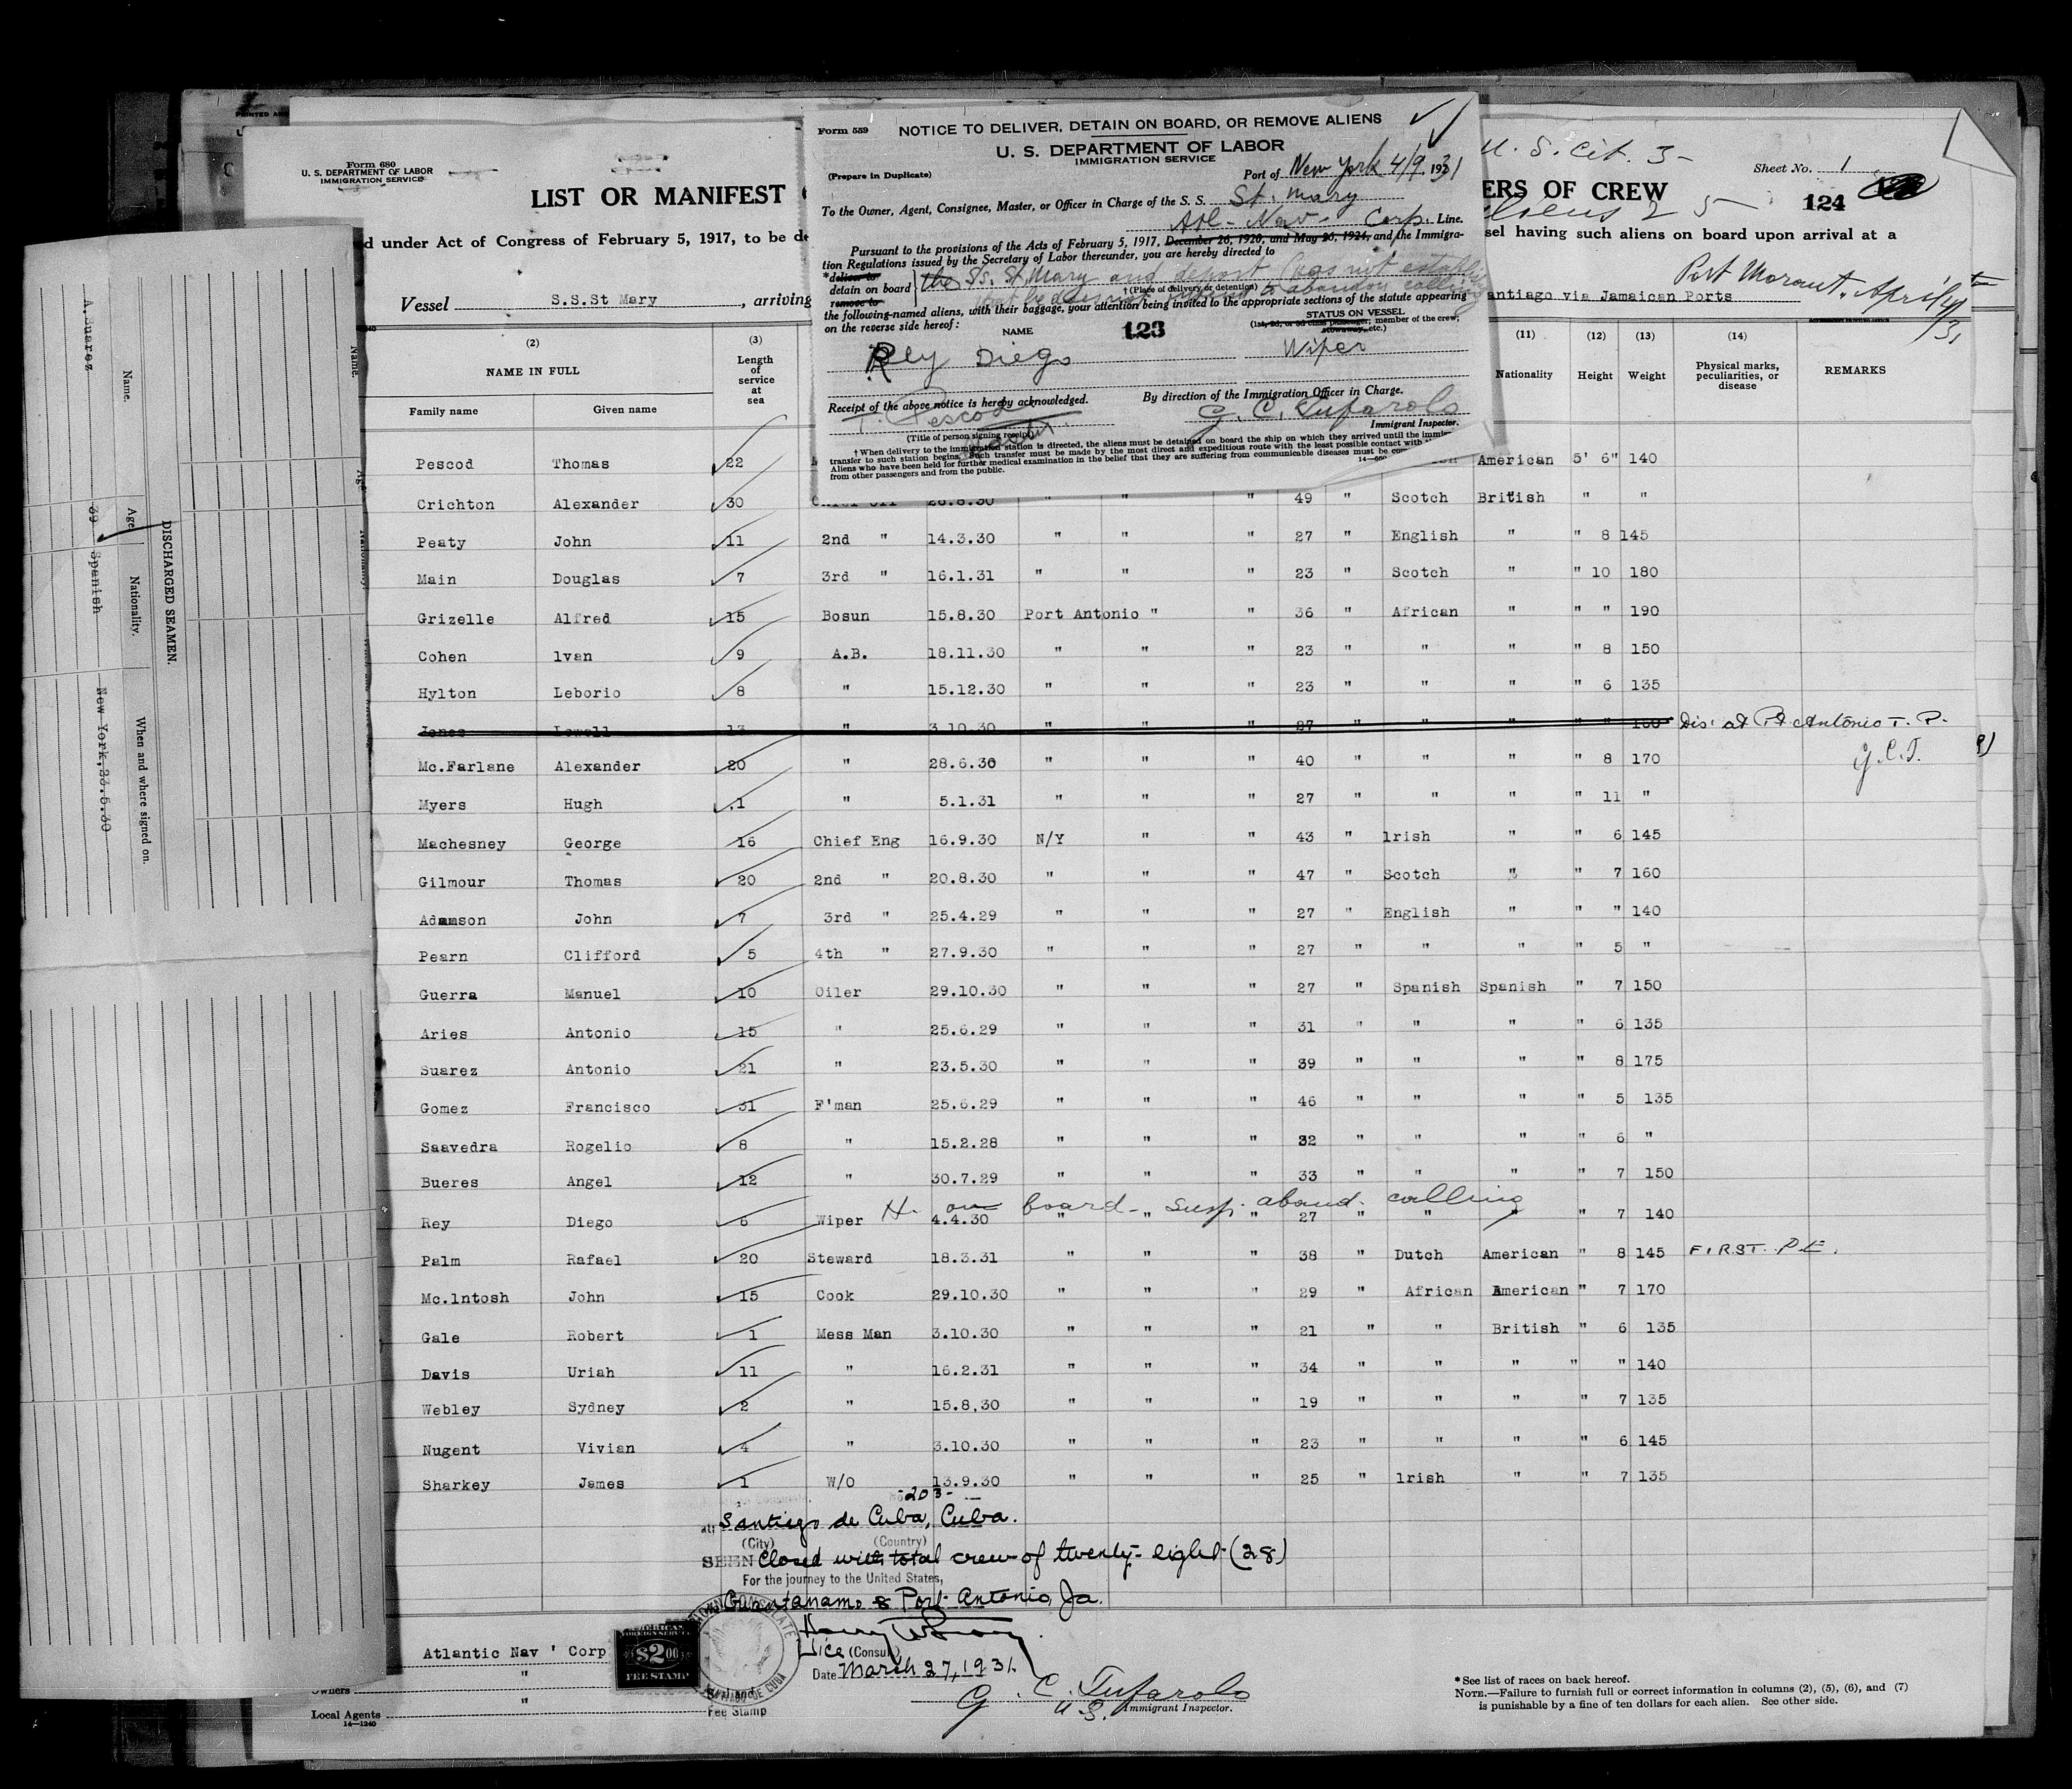 Form 680
U. S. DEPARTMENT OF LABOR
IMMIGRATION SERVICE
LIST OR MANIFEST
ERS OF CREW
U. S. Cit. 3-
Aliens 25
Sheet No. 1
124
d under Act of Congress of February 5, 1917, to be de
sel having such aliens on board upon arrival at a
Vessel S.S.St Mary , arriving
antiago via Jamaican Ports
Port Morant, April 4th/31
Form 559
NOTICE TO DELIVER, DETAIN ON BOARD, OR REMOVE ALIENS
U. S. DEPARTMENT OF LABOR
IMMIGRATION SERVICE
(Prepare in Duplicate)
Port of New York 4/9 1931
To the Owner, Agent, Consignee, Master, or Officer in Charge of the S. S. St. Mary
Atl- Nav- Corp. Line.
Pursuant to the provisions of the Acts of February 5, 1917, December 26, 1920, and May 26, 1924, and the Immigra-
tion Regulations issued by the Secretary of Labor thereunder, you are hereby directed to
*deliver to
detain on board
remove to
the Ss. St Mary and deport (has not establis
that he does not intend to abandon calling)
†(Place of delivery or detention)
the following-named aliens, with their baggage, your attention being invited to the appropriate sections of the statute appearing
on the reverse side hereof:
NAME
123
STATUS ON VESSEL
(1st, 2d, or 3d class passenger; member of the crew; stowaway, etc.)
Rey Diego Wiper
Receipt of the above notice is hereby acknowledged.
By direction of the Immigration Officer in Charge.
T. Pescod
G. C. Tufarolo
Immigrant Inspector.
(Title of person signing receipt)
Master
† When delivery to the immigration station is directed, the aliens must be detained on board the ship on which they arrived until the immig
transfer to such station begins. Such transfer must be made by the most direct and expeditious route with the least possible contact with
Aliens who have been held for further medical examination in the belief that they are suffering from communicable diseases must be con
from other passengers and from the public.
(2) (3) (11) (12) (13) (14)
NAME IN FULL
Family name Given name
Length of service at sea
Nationality Height Weight
Physical marks, peculiarities, or disease
REMARKS
Pescod Thomas 22 American 5' 6" 140
Crichton Alexander 30 28.8.30 " " " 49 " Scotch British " "
Peaty John 11 2nd " 14.3.30 " " " 27 " English " " 8 145
Main Douglas 7 3rd " 16.1.31 " " " 23 " Scotch " " 10 180
Grizelle Alfred 15 Bosun 15.8.30 Port Antonio " " 36 " African " " " 190
Cohen lvan 9 A.B. 18.11.30 " " " 23 " " " " 8 150
Hylton Leborio 8 " 15.12.30 " " " 23 " " " " 6 135
Jones Lowell 13 " 3.10.30 " " " 27 " " " " " 160 Dis. at Pt Antonio T. P.
G.C.T.
Mc.Farlane Alexander 20 " 28.6.30 " " " 40 " " " " 8 170
Myers Hugh 1 " 5.1.31 " " " 27 " " " " 11 "
Machesney George 16 Chief Eng 16.9.30 N/Y " " 43 " lrish " " 6 145
Gilmour Thomas 20 2nd " 20.8.30 " " " 47 " Scotch " " 7 160
Adamson John 7 3rd " 25.4.29 " " " 27 " English " " " 140
Pearn Clifford 5 4th " 27.9.30 " " " 27 " " " " 5 "
Guerra Manuel 10 Oiler 29.10.30 " " " 27 " Spanish Spanish " 7 150
Aries Antonio 15 " 25.6.29 " " " 31 " " " " 6 135
Suarez Antonio 21 " 23.5.30 " " " 39 " " " " 8 175
Gomez Francisco 31 F'man 25.6.29 " " " 46 " " " " 5 135
Saavedra Rogelio 8 " 15.2.28 " " " 32 " " " " 6 "
Bueres Angel 12 " 30.7.29 " " " 33 " " " " 7 150
H. on board - susp. aband. calling
Rey Diego 6 Wiper 4.4.30 " " " 27 " " " " 7 140
Palm Rafael 20 Steward 18.3.31 " " " 38 " Dutch American " 8 145 FIRST P.E.
Mc.lntosh John 15 Cook 29.10.30 " " " 29 " African American " 7 170
Gale Robert 1 Mess Man 3.10.30 " " " 21 " " British " 6 135
Davis Uriah 11 " 16.2.31 " " " 34 " " " " " 140
Webley Sydney 2 " 15.8.30 " " " 19 " " " " 7 135
Nugent Vivian 4 " 3.10.30 " " " 23 " " " " 6 145
Sharkey James 1 W/O 13.9.30 " " " 25 " lrish " " 7 135
-203-
at Santiago de Cuba, Cuba.
(City) (Country)
SEEN Closed with total crew of twenty-eight (28)
For the journey to the United States,
Guantanamo & Port Antonio, Ja.
Vice (Consul)
Date March 27, 1931.
AMERICAN
FOREIGN SERVICE
$2.00
FEE STAMP
Fee Stamp
Atlantic Nav ' Corp
"
Owners
"
Local Agents
14—1240
G. C. Tufarolo
U.S. Immigrant Inspector.
* See list of races on back hereof.
NOTE.—Failure to furnish full or correct information in columns (2), (5), (6), and (7)
is punishable by a fine of ten dollars for each alien. See other side.
DISCHARGED SEAMEN.
Name. Age Nationality. When and where signed on.
A.Suarez 39 Spanish New York,23.5.30